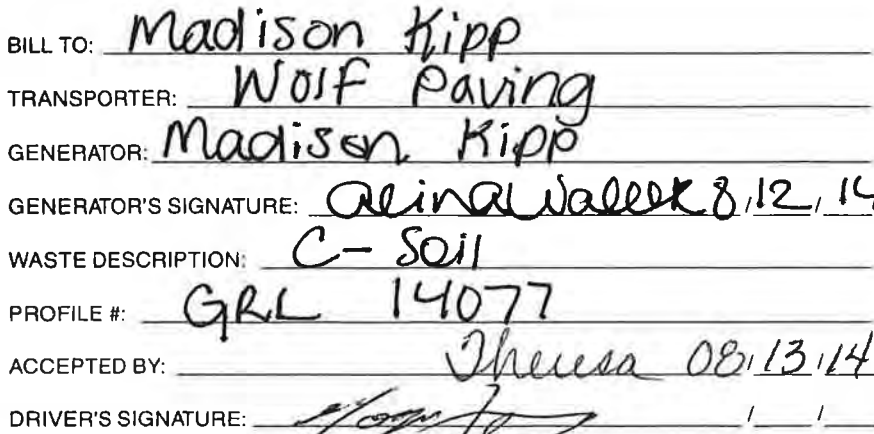 BILL TO: Madison Kipp
TRANSPORTER: Wolf Paving
GENERATOR: Madison Kipp
GENERATOR'S SIGNATURE: 8/12/14
WASTE DESCRIPTION: C- Soil
PROFILE #: GRL 14077
ACCEPTED BY: Theresa 08/13/14
DRIVER'S SIGNATURE: / /